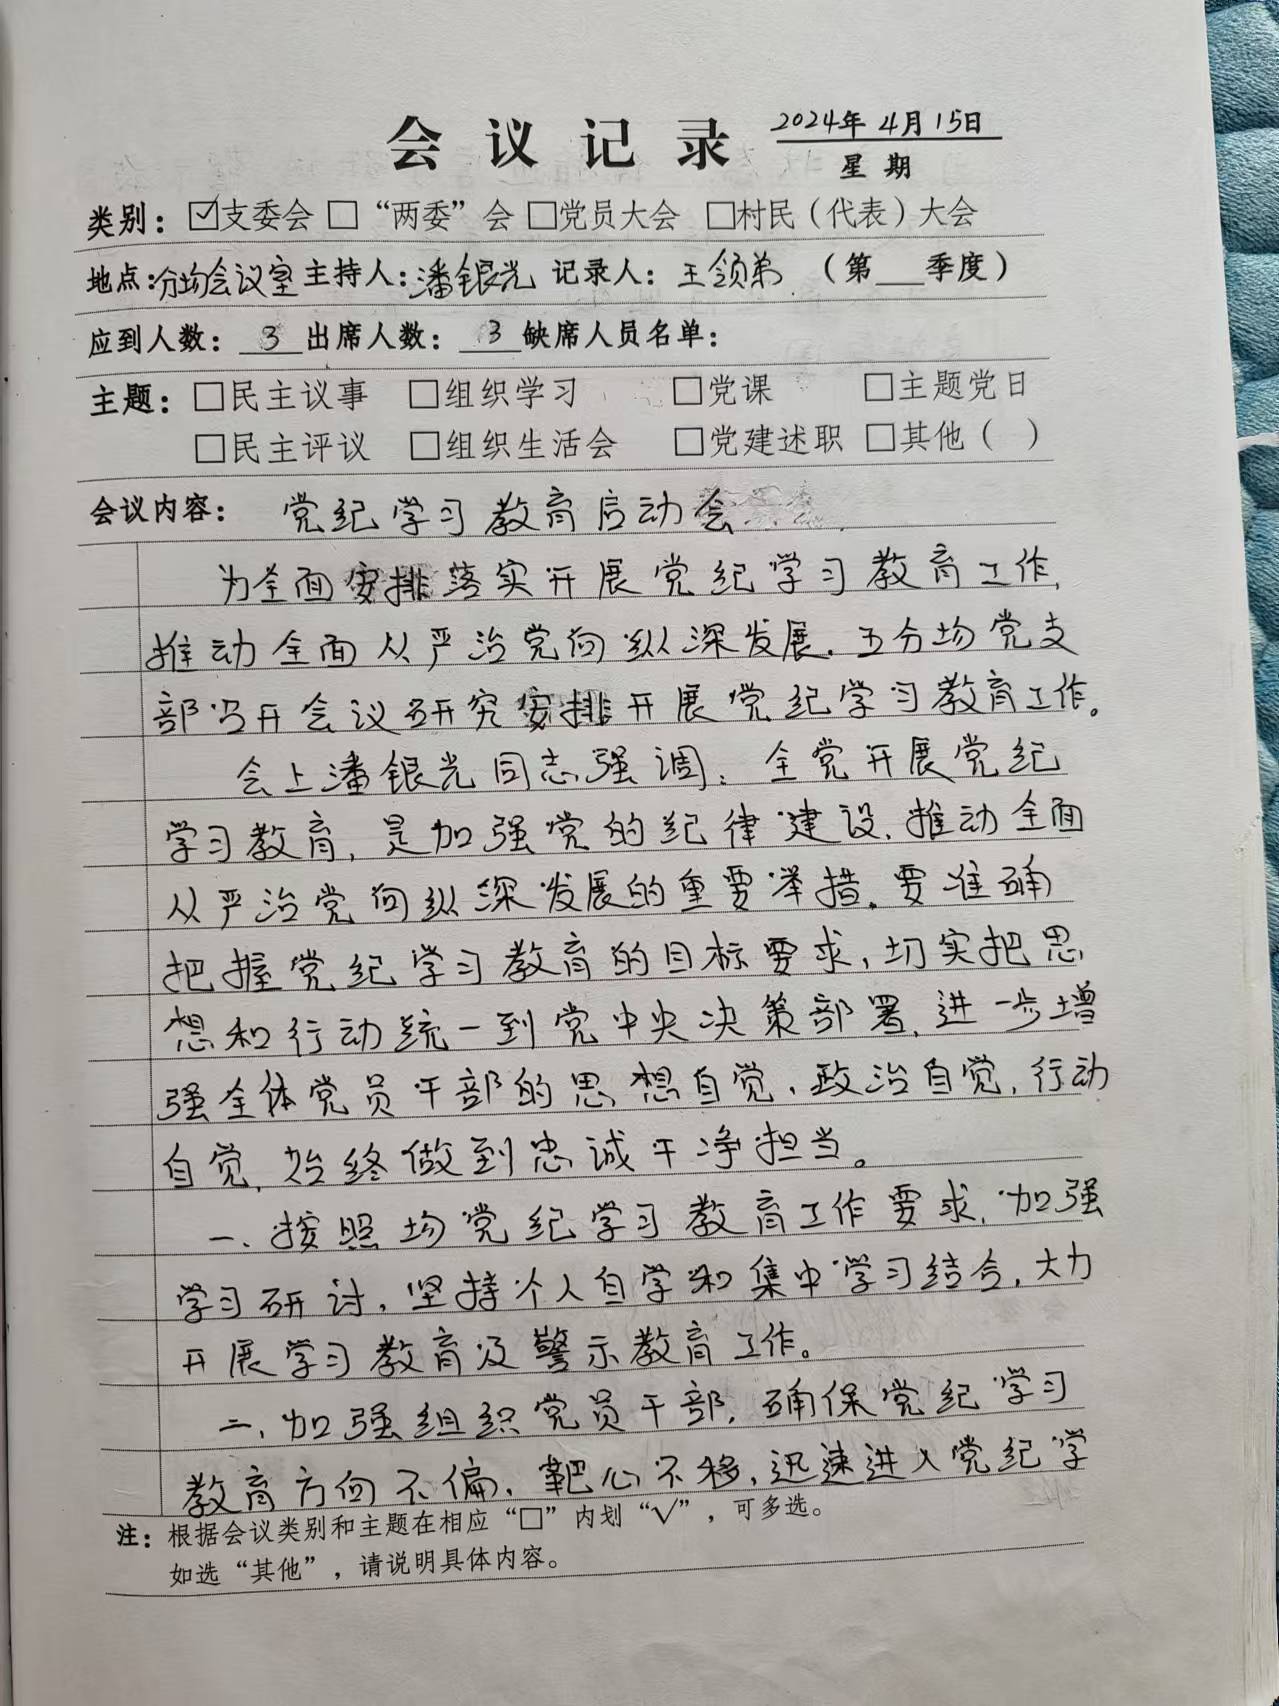 会议记录 2024年4月15日
星期
类别：☑支委会 □“两委”会 □党员大会 □村民（代表）大会
地点：分场会议室 主持人：潘银光 记录人：王领弟 （第___季度）
应到人数：3 出席人数：3 缺席人员名单：
主题：□民主议事 □组织学习 □党课 □主题党日
□民主评议 □组织生活会 □党建述职 □其他（ ）
会议内容：党纪学习教育启动会
为全面安排落实开展党纪学习教育工作，
推动全面从严治党向纵深发展。五分场党支
部召开会议研究安排开展党纪学习教育工作。
会上潘银光同志强调：全党开展党纪
学习教育，是加强党的纪律建设，推动全面
从严治党向纵深发展的重要举措。要准确
把握党纪学习教育的目标要求，切实把思
想和行动统一到党中央决策部署，进一步增
强全体党员干部的思想自觉、政治自觉，行动
自觉，始终做到忠诚干净担当。
一、按照场党纪学习教育工作要求，加强
学习研讨，坚持个人自学和集中学习结合，大力
开展学习教育及警示教育工作。
二、加强组织党员干部，确保党纪学习
教育方向不偏，靶心不移，迅速进入党纪学
注：根据会议类别和主题在相应“□”内划“√”，可多选。
如选“其他”，请说明具体内容。